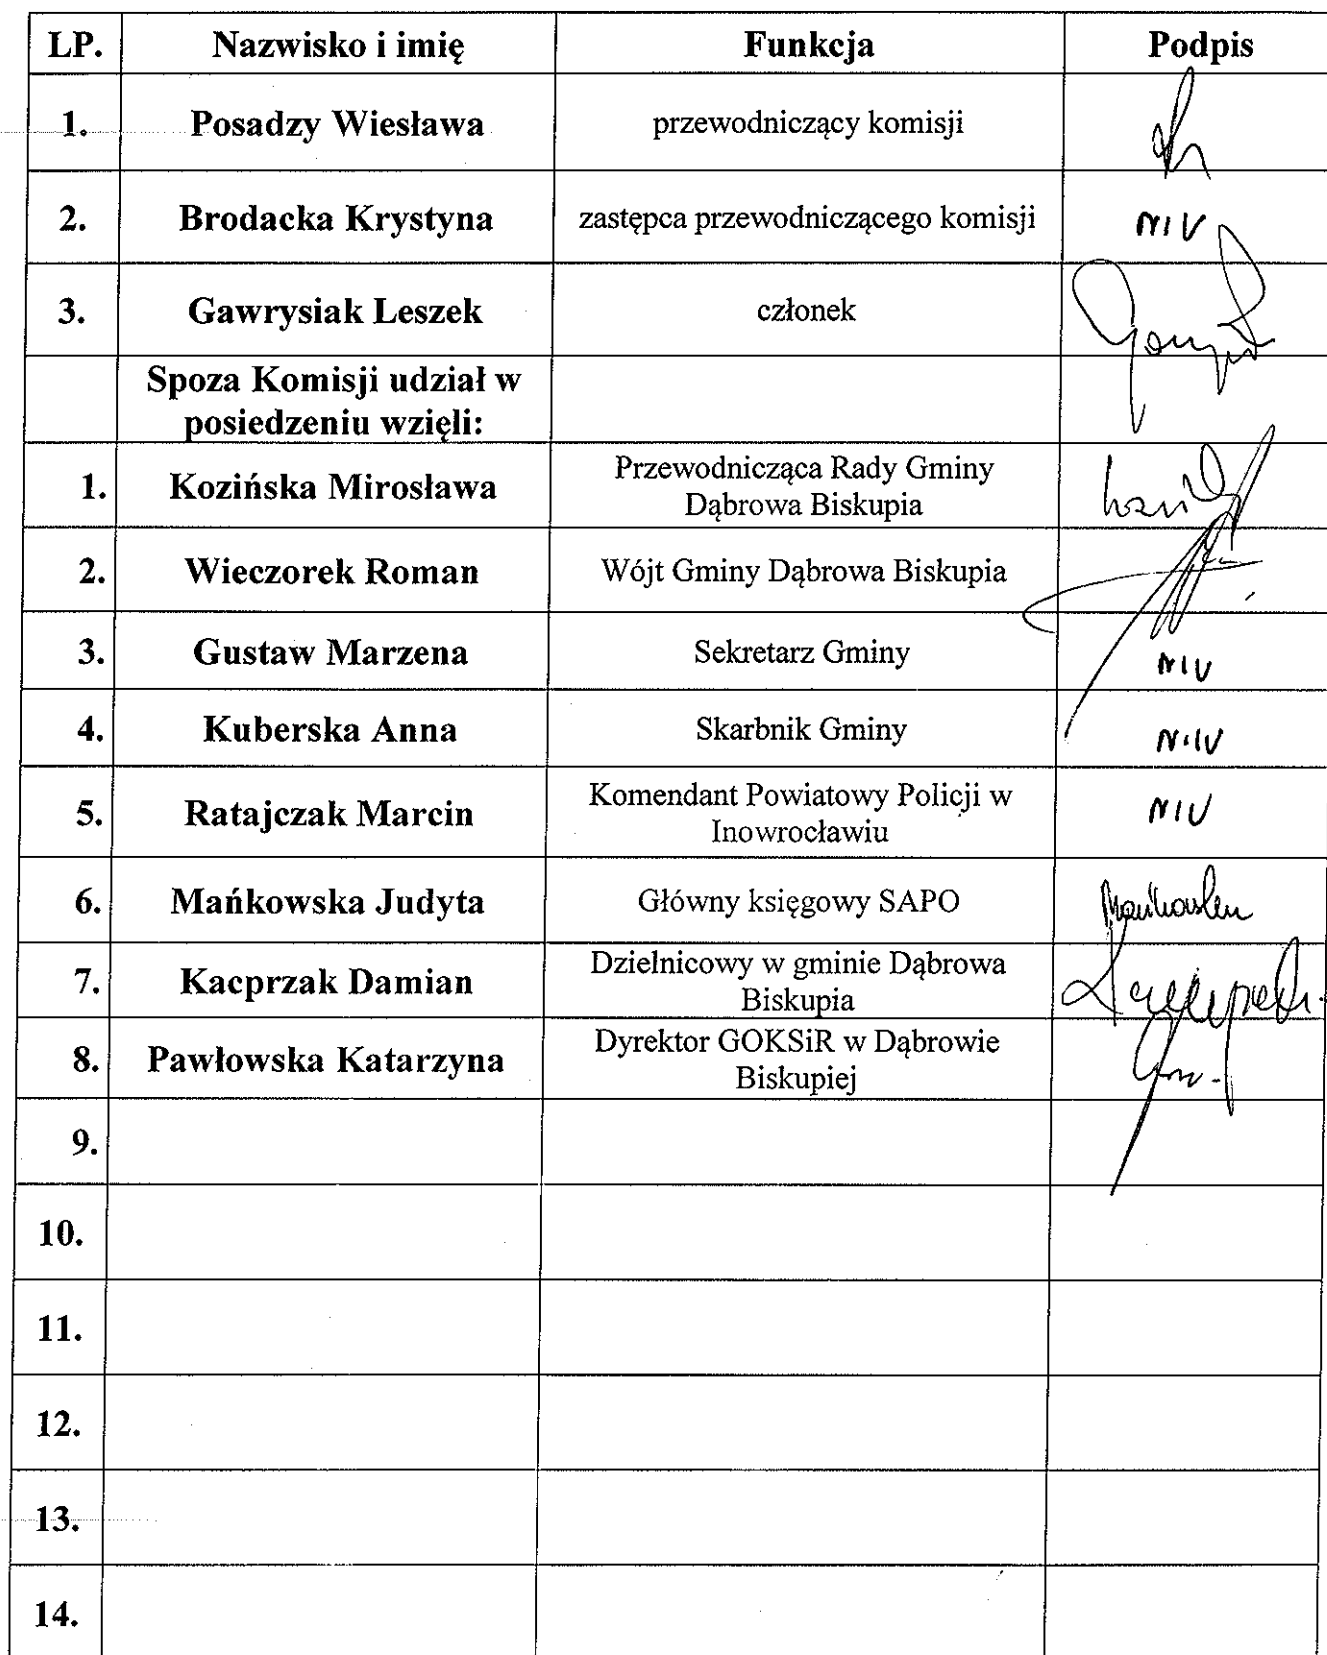 LP. Nazwisko i imię Funkcja Podpis
1. Posadzy Wiesława przewodniczący komisji
2. Brodacka Krystyna zastępca przewodniczącego komisji
3. Gawrysiak Leszek członek
Spoza Komisji udział w
posiedzeniu wzięli:
1. Kozińska Mirosława Przewodnicząca Rady Gminy
Dąbrowa Biskupia
2. Wieczorek Roman Wójt Gminy Dąbrowa Biskupia
3. Gustaw Marzena Sekretarz Gminy
4. Kuberska Anna Skarbnik Gminy
5. Ratajczak Marcin Komendant Powiatowy Policji w
Inowrocławiu
6. Mańkowska Judyta Główny księgowy SAPO Mańkowska
7. Kacprzak Damian Dzielnicowy w gminie Dąbrowa
Biskupia
8. Pawłowska Katarzyna Dyrektor GOKSiR w Dąbrowie
Biskupiej
9.
10.
11.
12.
13.
14.